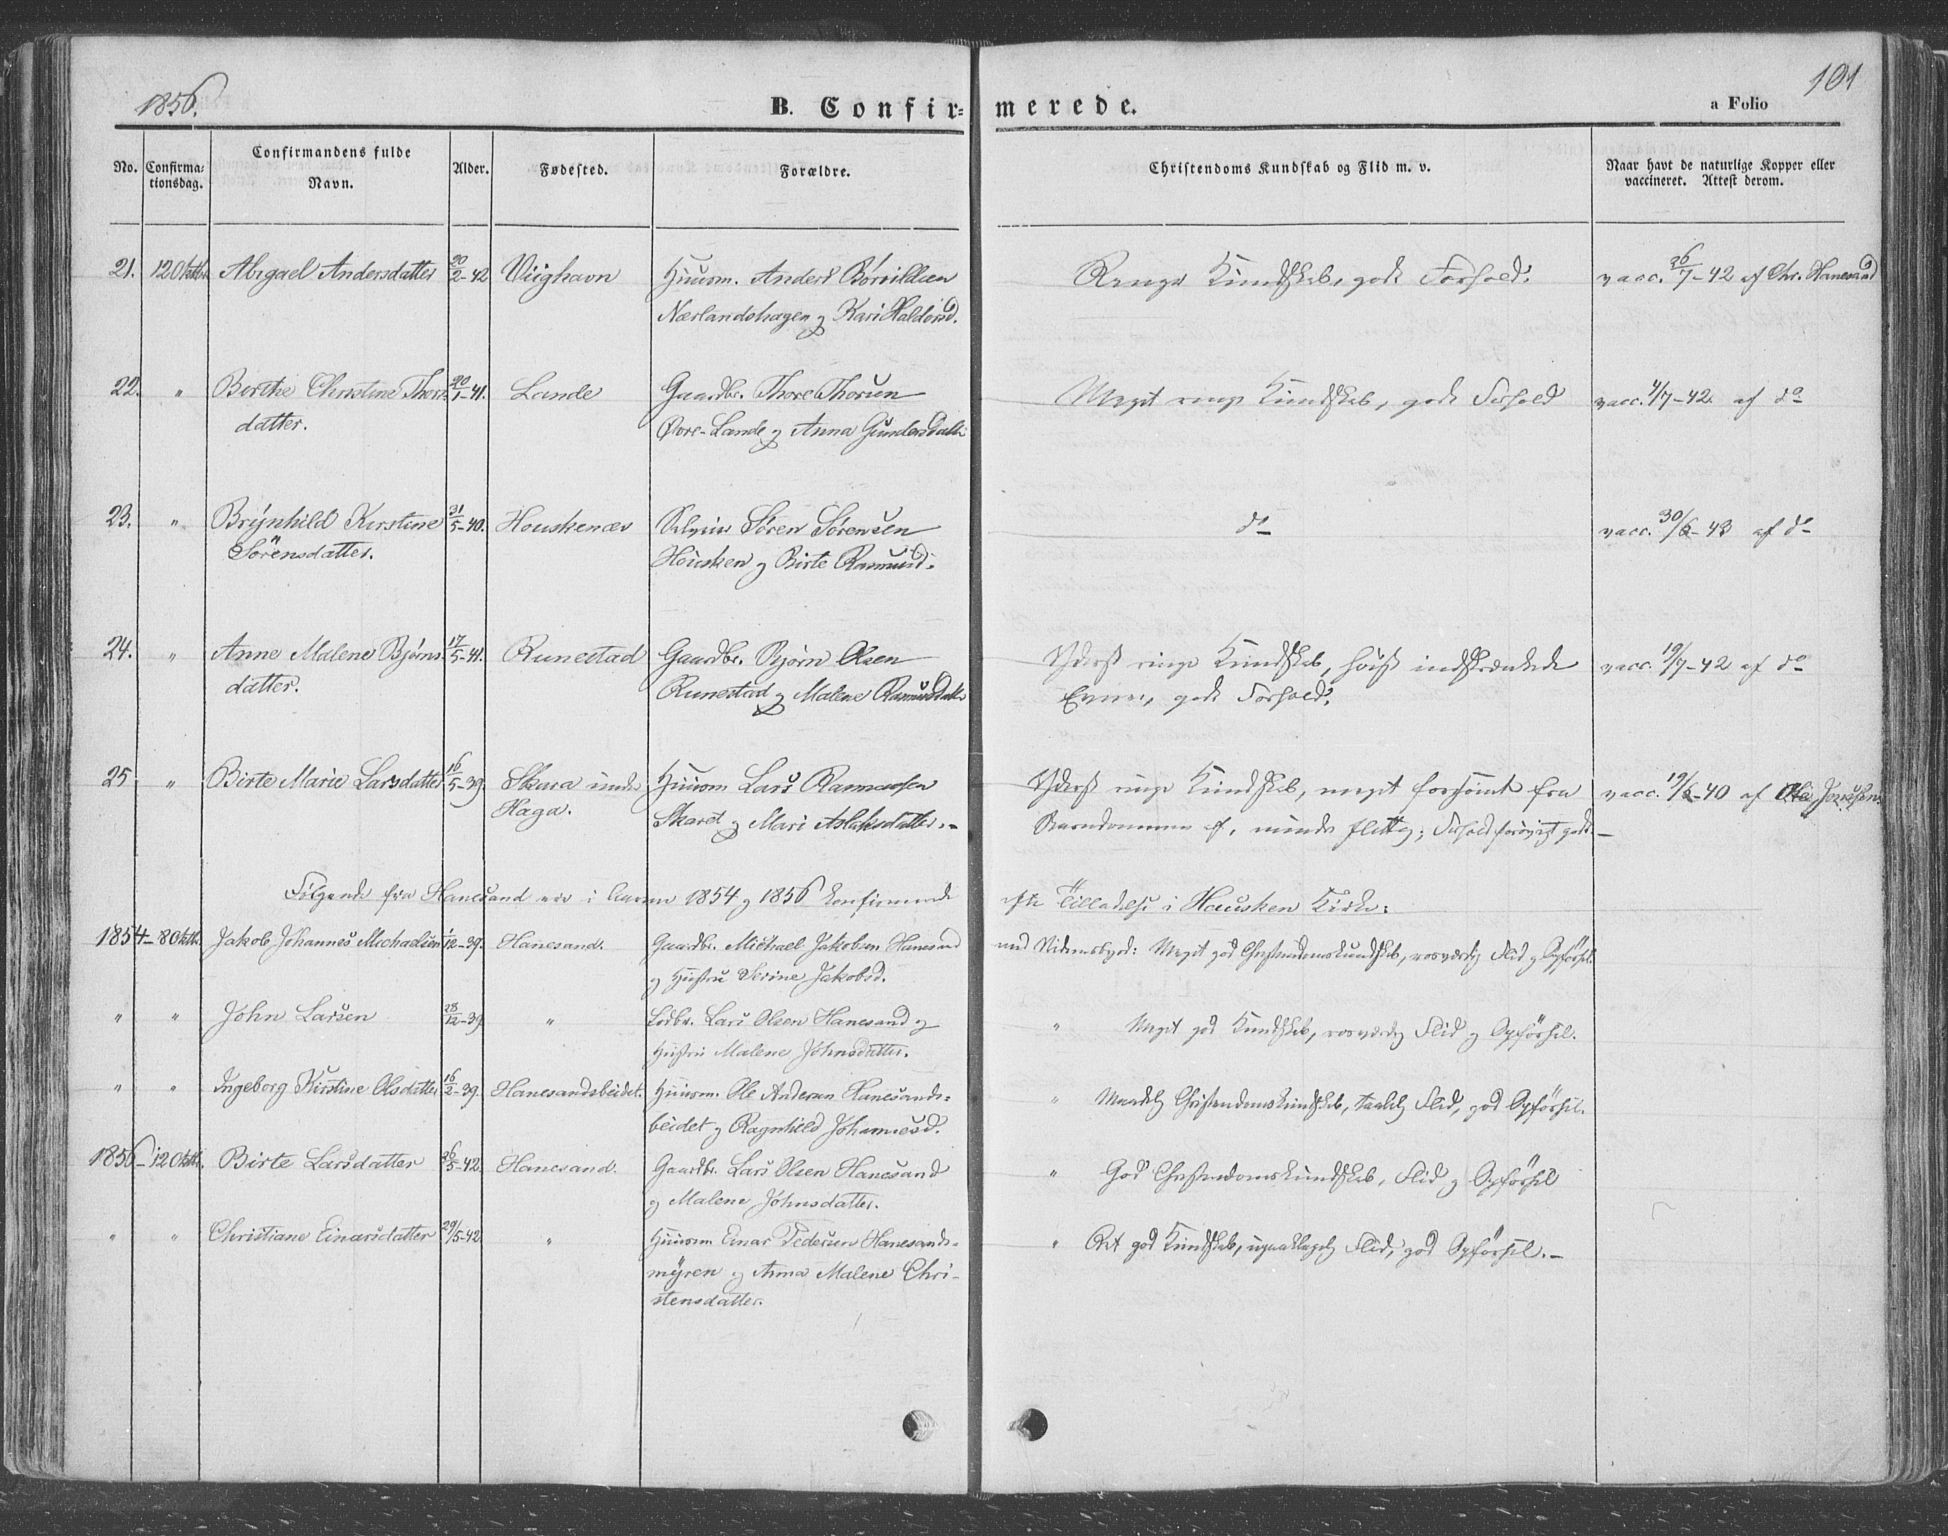 1856.
B. Confirmerede.
a Folio
101
No.
Confirmationsdag.
Confirmandens fulde Navn.
Alder.
Fødested.
Forældre.
Christendoms Kundskab og Flid m. v.
Naar havt de naturlige Kopper eller vaccineret. Attest derom.
21. 12 Oktbr. Abigael Andersdatter 20/2-42 Viighavn Huusm. Anders
Nærlandshagen og Kari Haldorsd.
Ringe Kundskab, godt Forhold.
vacc. 26/7-42 af Chr. Hanesand
22. " Berthe Christine Thors- 20/1-41. Lande Gaardbr. Thore Thorsen
datter. Øvre-Lande og Anna Gundersdatter
Meget ringe Kundskab, godt Forhold
vacc. 4/7-42 af do
23. " Brynhild Kirstine 31/5-40. Houskenæs Søren Sørensen
Sørensdatter. Housken og Birte Rasmusd.
do
vacc. 30/6-43 af do
24. " Anne Malene Bjørns- 17/5-41. Runestad Gaardbr. Bjørn Olsen
datter. Runestad og Malene Rasmusdatter
Yderst ringe Kundskab, høist indskrænkede
Evner, godt Forhold.
vacc. 19/7-42 af do
25 " Birte Marie Larsdatter 16/5-39. Skara under Huusm. Lars Rasmussen
Haga. Skaret og Mari Aslaksdatter.
Yderst ringe Kundskab, meget forsømt fra
Barndommen af, mindre flittig; Forhold forøvrigt godt
vacc. 19/6-40 af Ole
Følgende fra Hanesand ere i Aarene 1854 og 1856 konfirmerede
efter Tilladelse i Housken Kirke:
1854 - 8 Oktbr. Jakob Johannes Michaelsen 1/12-39. Hanesand. Gaardbr. Michael Jakobsen Hanesand
og Hustru Serine Jakobsd.
med Vidnesbyrd: Meget god Christendomskundskab, rosværdig Flid og Opførsel.
" " John Larsen 28/12-39 " Lars Olsen Hanesand og
Hustru Malene Johnsdatter.
" Meget god Kundskab, rosværdig Flid og Opførsel.
" " Ingeborg Kirstine Olsdatter 16/2-39. Hanesandsbeidet. Huusm. Ole Andersen Hanesands-
beidet og Ragnhild Johannesd.
" Maadelig Christendomskundskab, taalelig Flid, god Opførsel.
1856 - 12 Oktbr. Birte Larsdatter 26/5-42. Hanesand. Gaardbr. Lars Olsen Hanesand
og Malene Johnsdatter.
" God Christendomskundskab, Flid og Opførsel
" " Christiane Einarsdatter 29/5-42 " Huusm. Einar Pedersen Hanesands-
myren og Anna Malene Chri-
stensdatter.
" Ret god Kundskab, upaaklagelig Flid, god Opførsel.